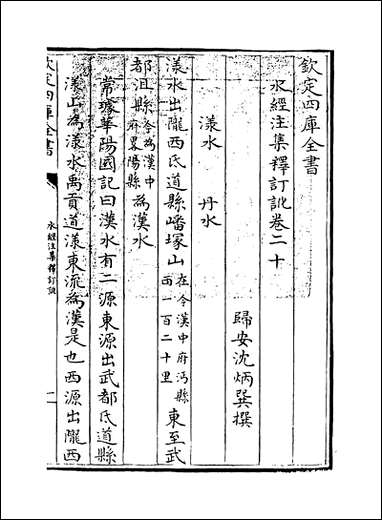 欽定四庫全書
水經注集釋訂訛卷二十
歸安沈炳巽撰
漾水　丹水
漾水出隴西氐道縣嶓冡山在今漢中府沔縣西一百二十里東至武
都沮縣今為漢中府畧陽縣為漢水
常璩華陽國記曰漢水有二源東源出武都氐道縣
漾山為漾水禹貢道漾東流為漢是也西源出隴西
欽定四庫全書
水經注集釋訂訛
一